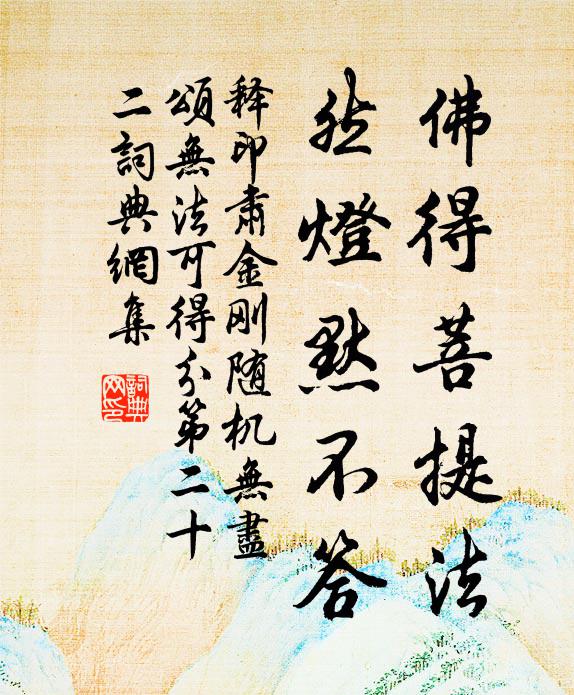 佛得菩提法
然燈默不答
释印肅金刚随机無盡
頌無法可得分第二十
二詞典網集
詞典
网印